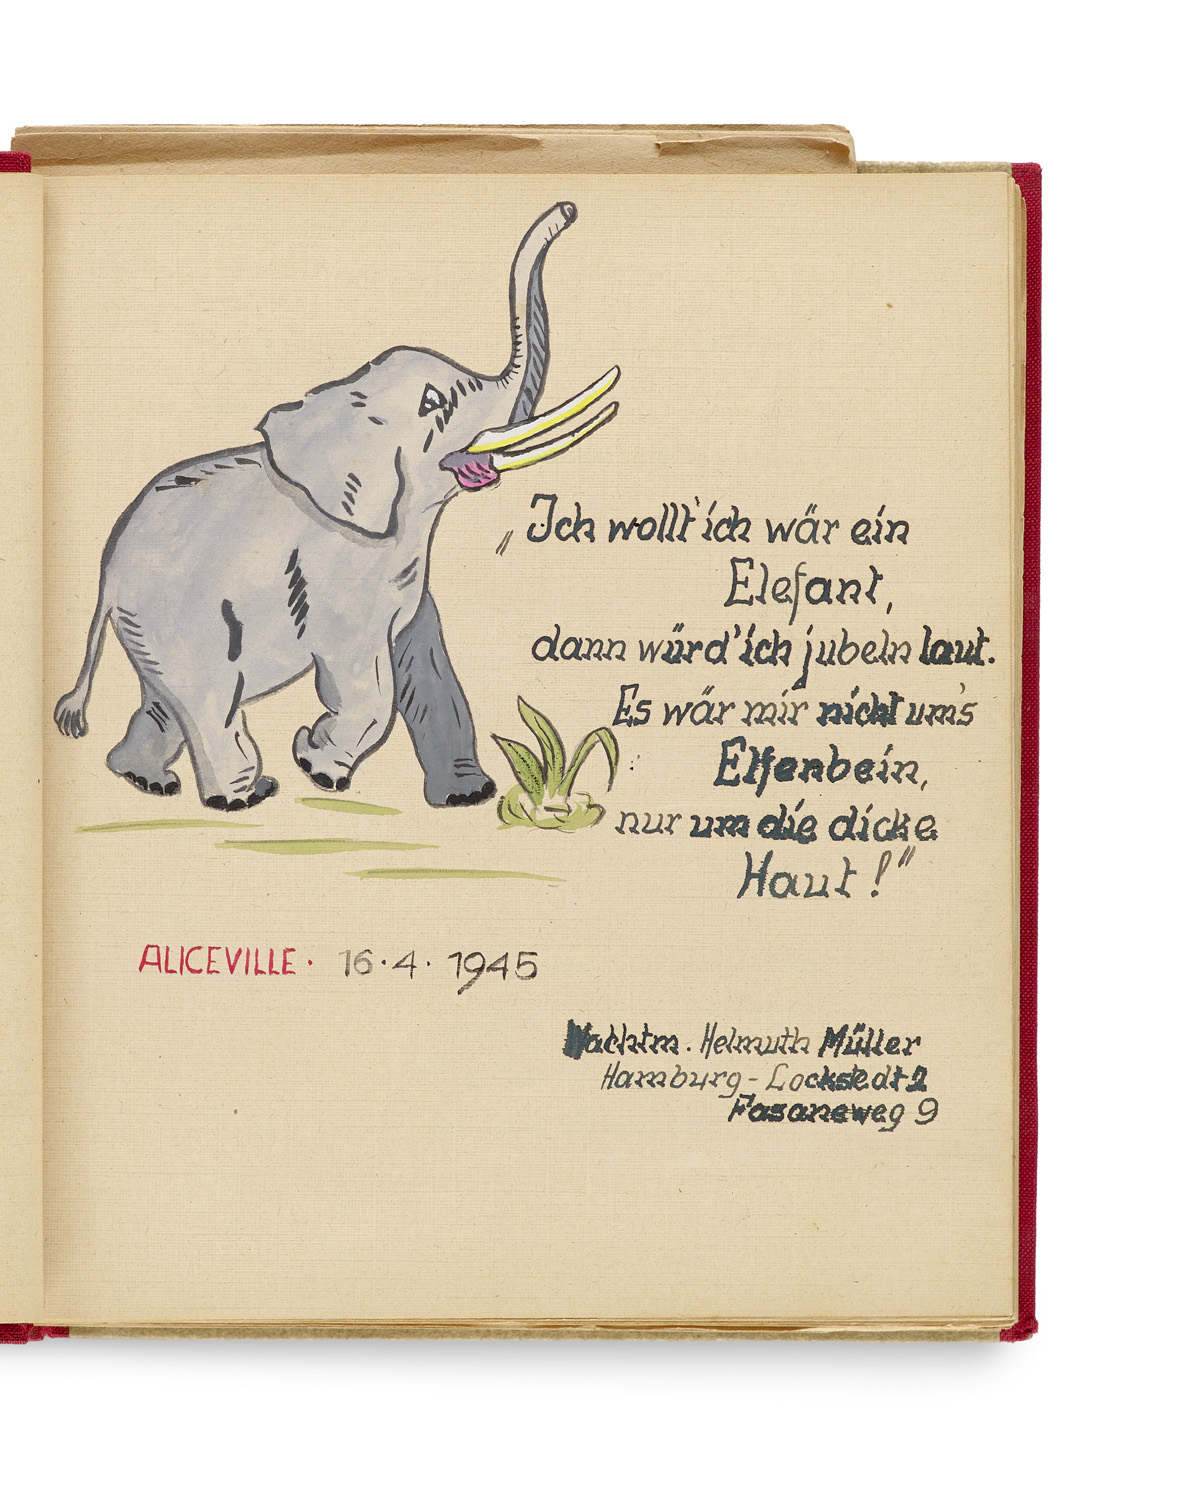 „Ich wollt' ich wär ein
Elefant,
dann würd' ich jubeln laut.
Es wär mir nicht um's
Elfenbein,
nur um die dicke
Haut!"
ALICEVILLE · 16·4· 1945
Wachtm. Helmuth Müller
Hamburg-Lockstedt 2
Fasaneweg 9